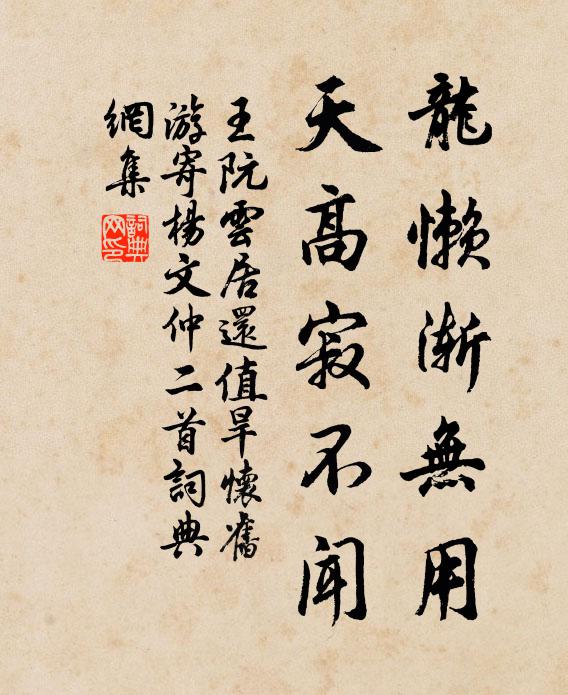 龍懶漸無用
天高寂不聞
王阮雲居還值旱懷舊
游寄楊文仲二首詞典
網集
詞典
网印